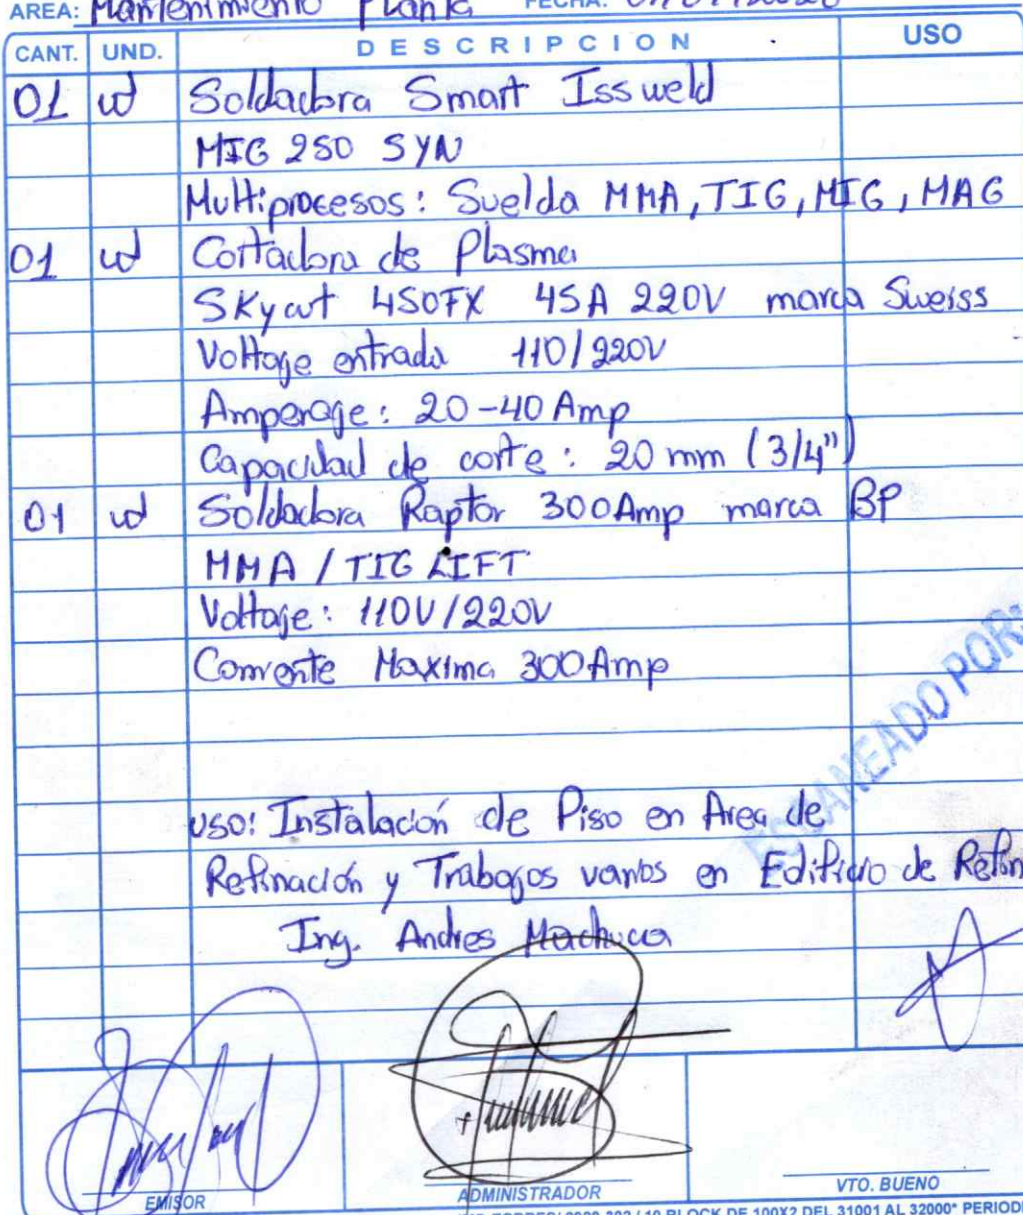 AREA: Mantenimiento Planta FECHA:
CANT. UND. DESCRIPCION USO
01 ud Soldadora Smart Issweld
MIG 250 SYN
Multiprocesos: Suelda MMA, TIG, MIG, MAG
01 ud Cortadora de Plasma
SKycut 450FX 45A 220V marca Sweiss
Voltage entrada 110/220V
Amperage: 20-40 Amp
Capacidad de corte: 20 mm (3/4")
01 ud Soldadora Raptor 300Amp marca BP
MMA / TIG LIFT
Voltage: 110V/220V
Corriente Maxima 300Amp
ESCANEADO POR:
USO: Instalación de Piso en Area de
Refinación y Trabajos varios en Edificio de Refin
Ing. Andres Machuca
EMISOR ADMINISTRADOR VTO. BUENO
10 BLOCK DE 100X2 DEL 31001 AL 32000* PERIOD